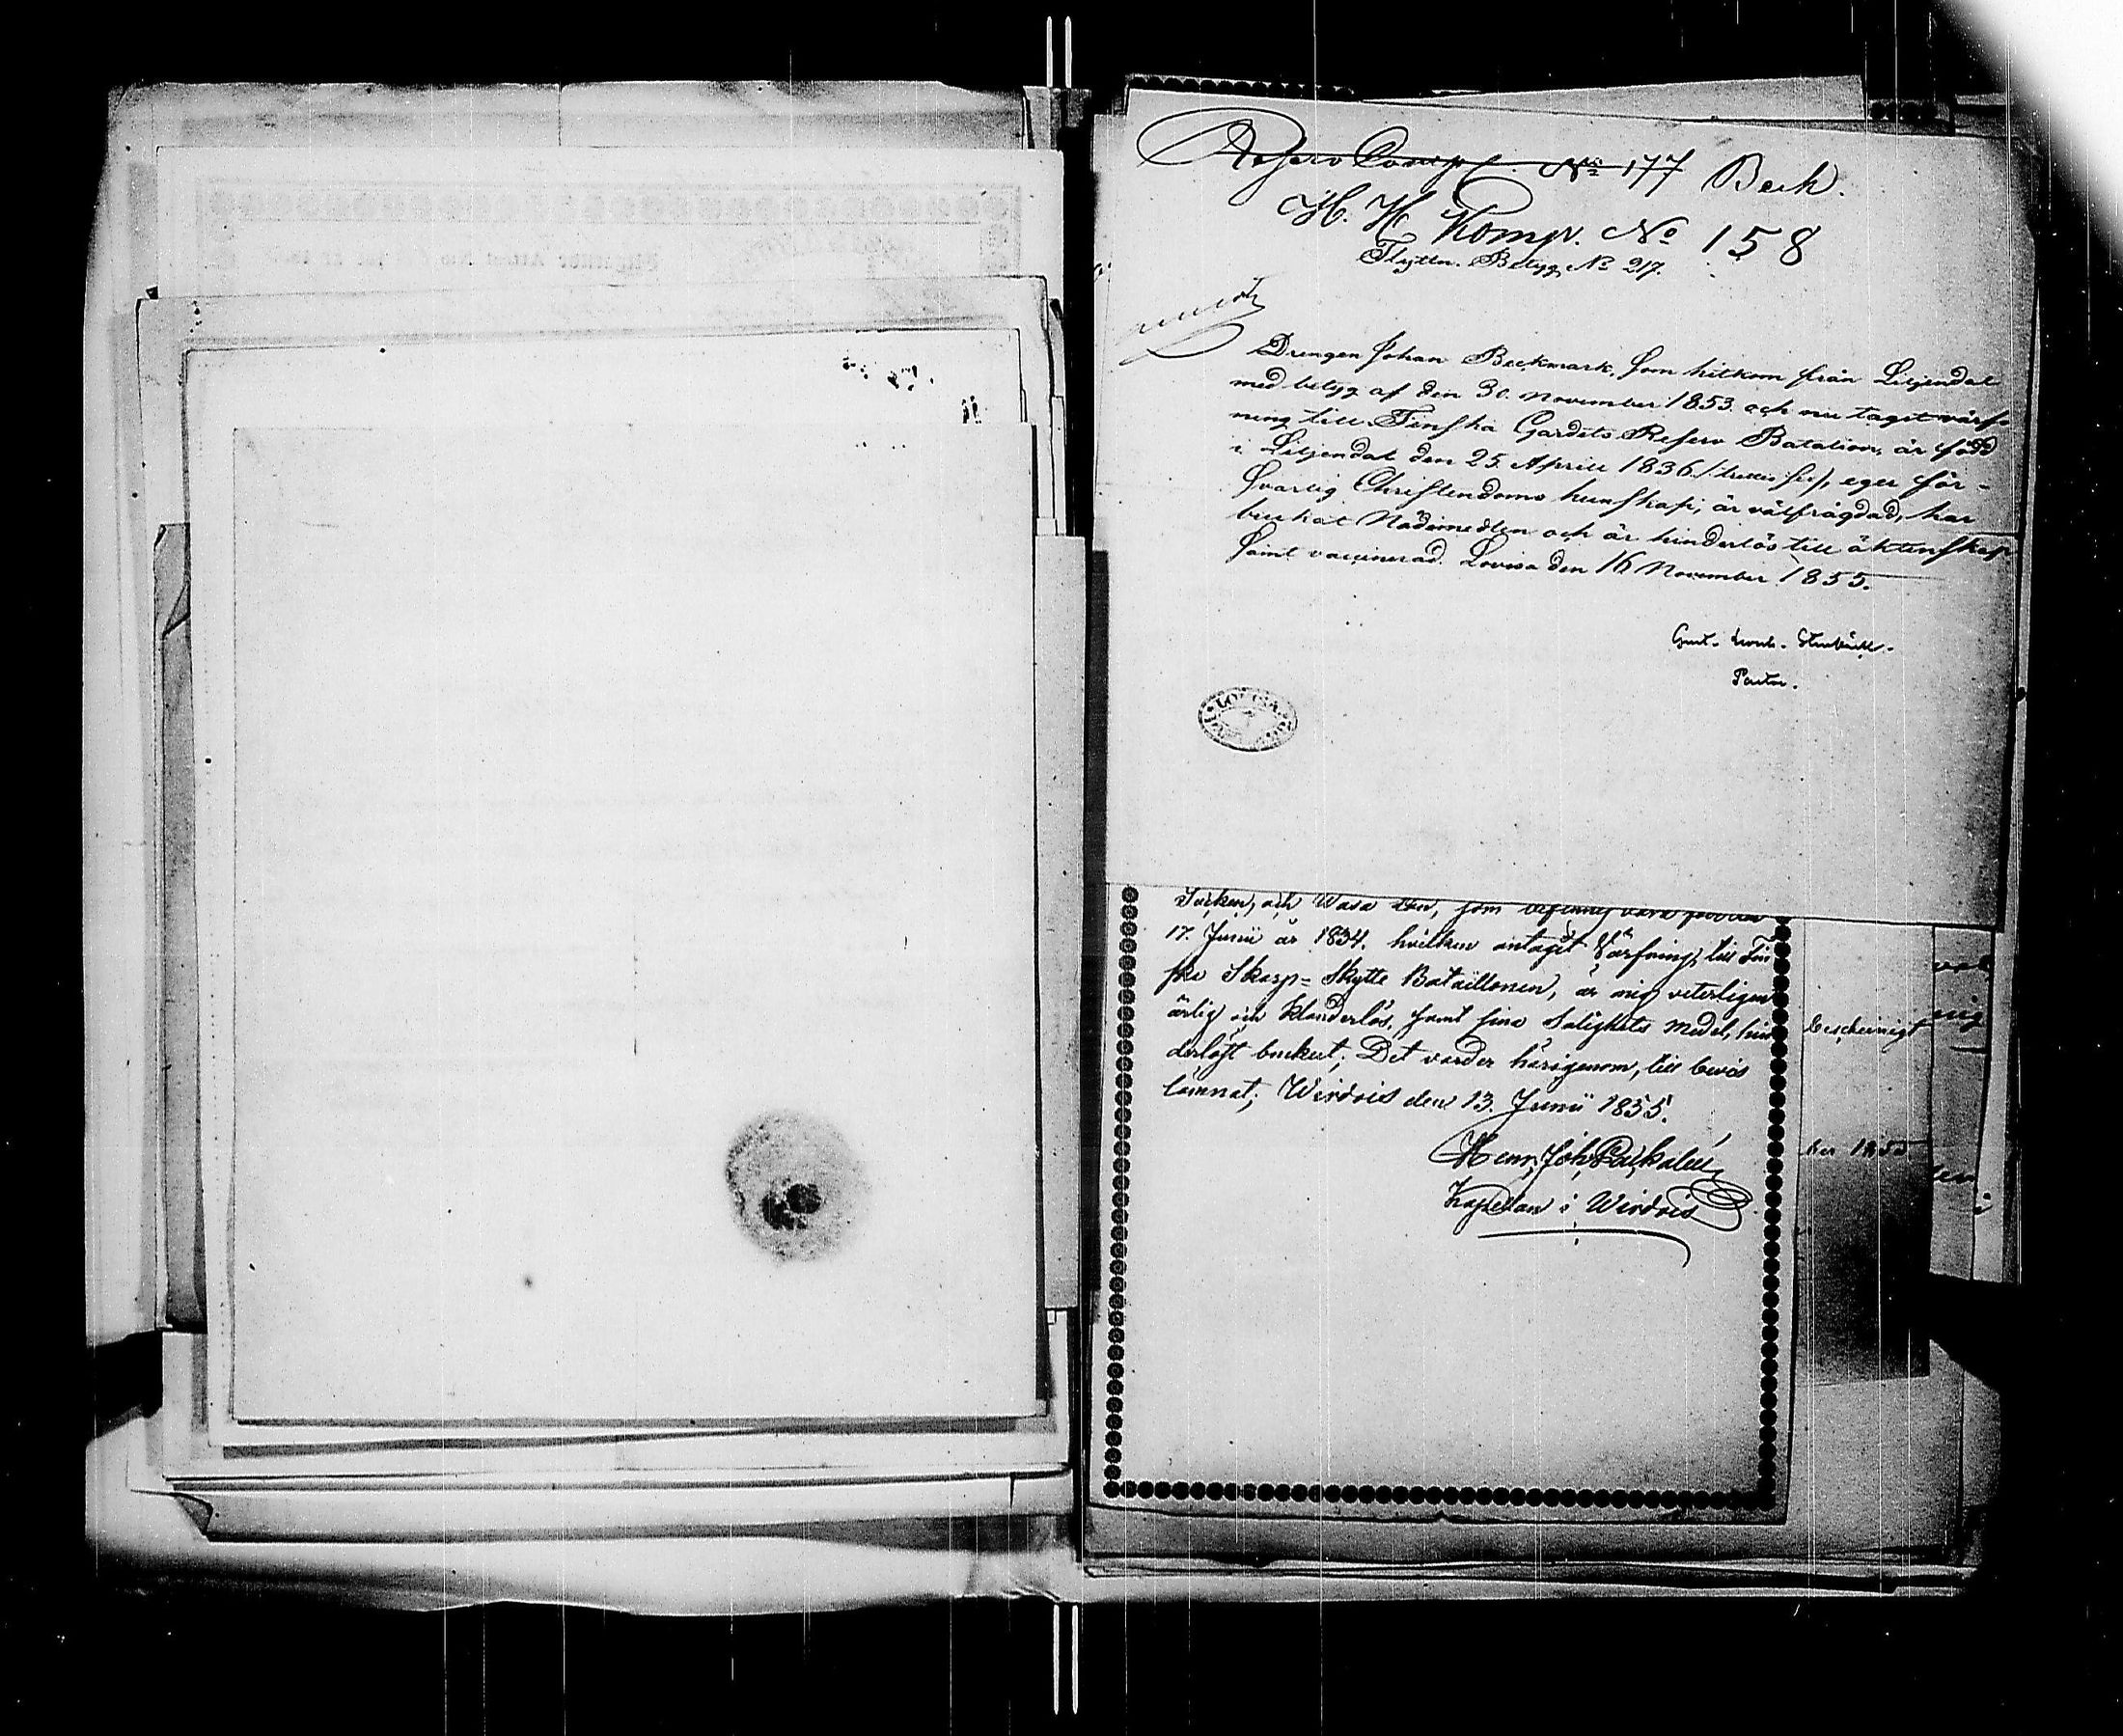 Reserv Comp. No 177 Beck.
H. H. Komp. No 158
Flyttn. Betyg No 217.
Drengen Johan Beckmark, som hitkom från Liljendal
med betyg af den 30. November 1853 och nu tagit värf-
ning till Finska Gardets Reserv Batalion, är född
i Liljendal den 25. Aprill 1836 /: trettio sex /, eger för-
svarlig Christendoms kunskap, är välfrägdad, har
brukat Nådemedlen och är hinderlös till äktenskap
samt vaccinerad. Lovisa den 16 November 1855.
Gust.
Pastor.
LOVISA
Socken, och Wasa Län, som
17. Junii år 1834. hvilken antagit Värfning till Fin
ska Skarp-Skytte Bataillonen, är mig veterligen
ärlig och klanderlös, samt sina Salighets medel, hin
derlöst brukat; Det varder härigenom, till bevis
lämnat; Wirdois den 13. Junii 1855.
Henr. Joh.
Kapellan i Wirdois
bescheinigt
ber 1855